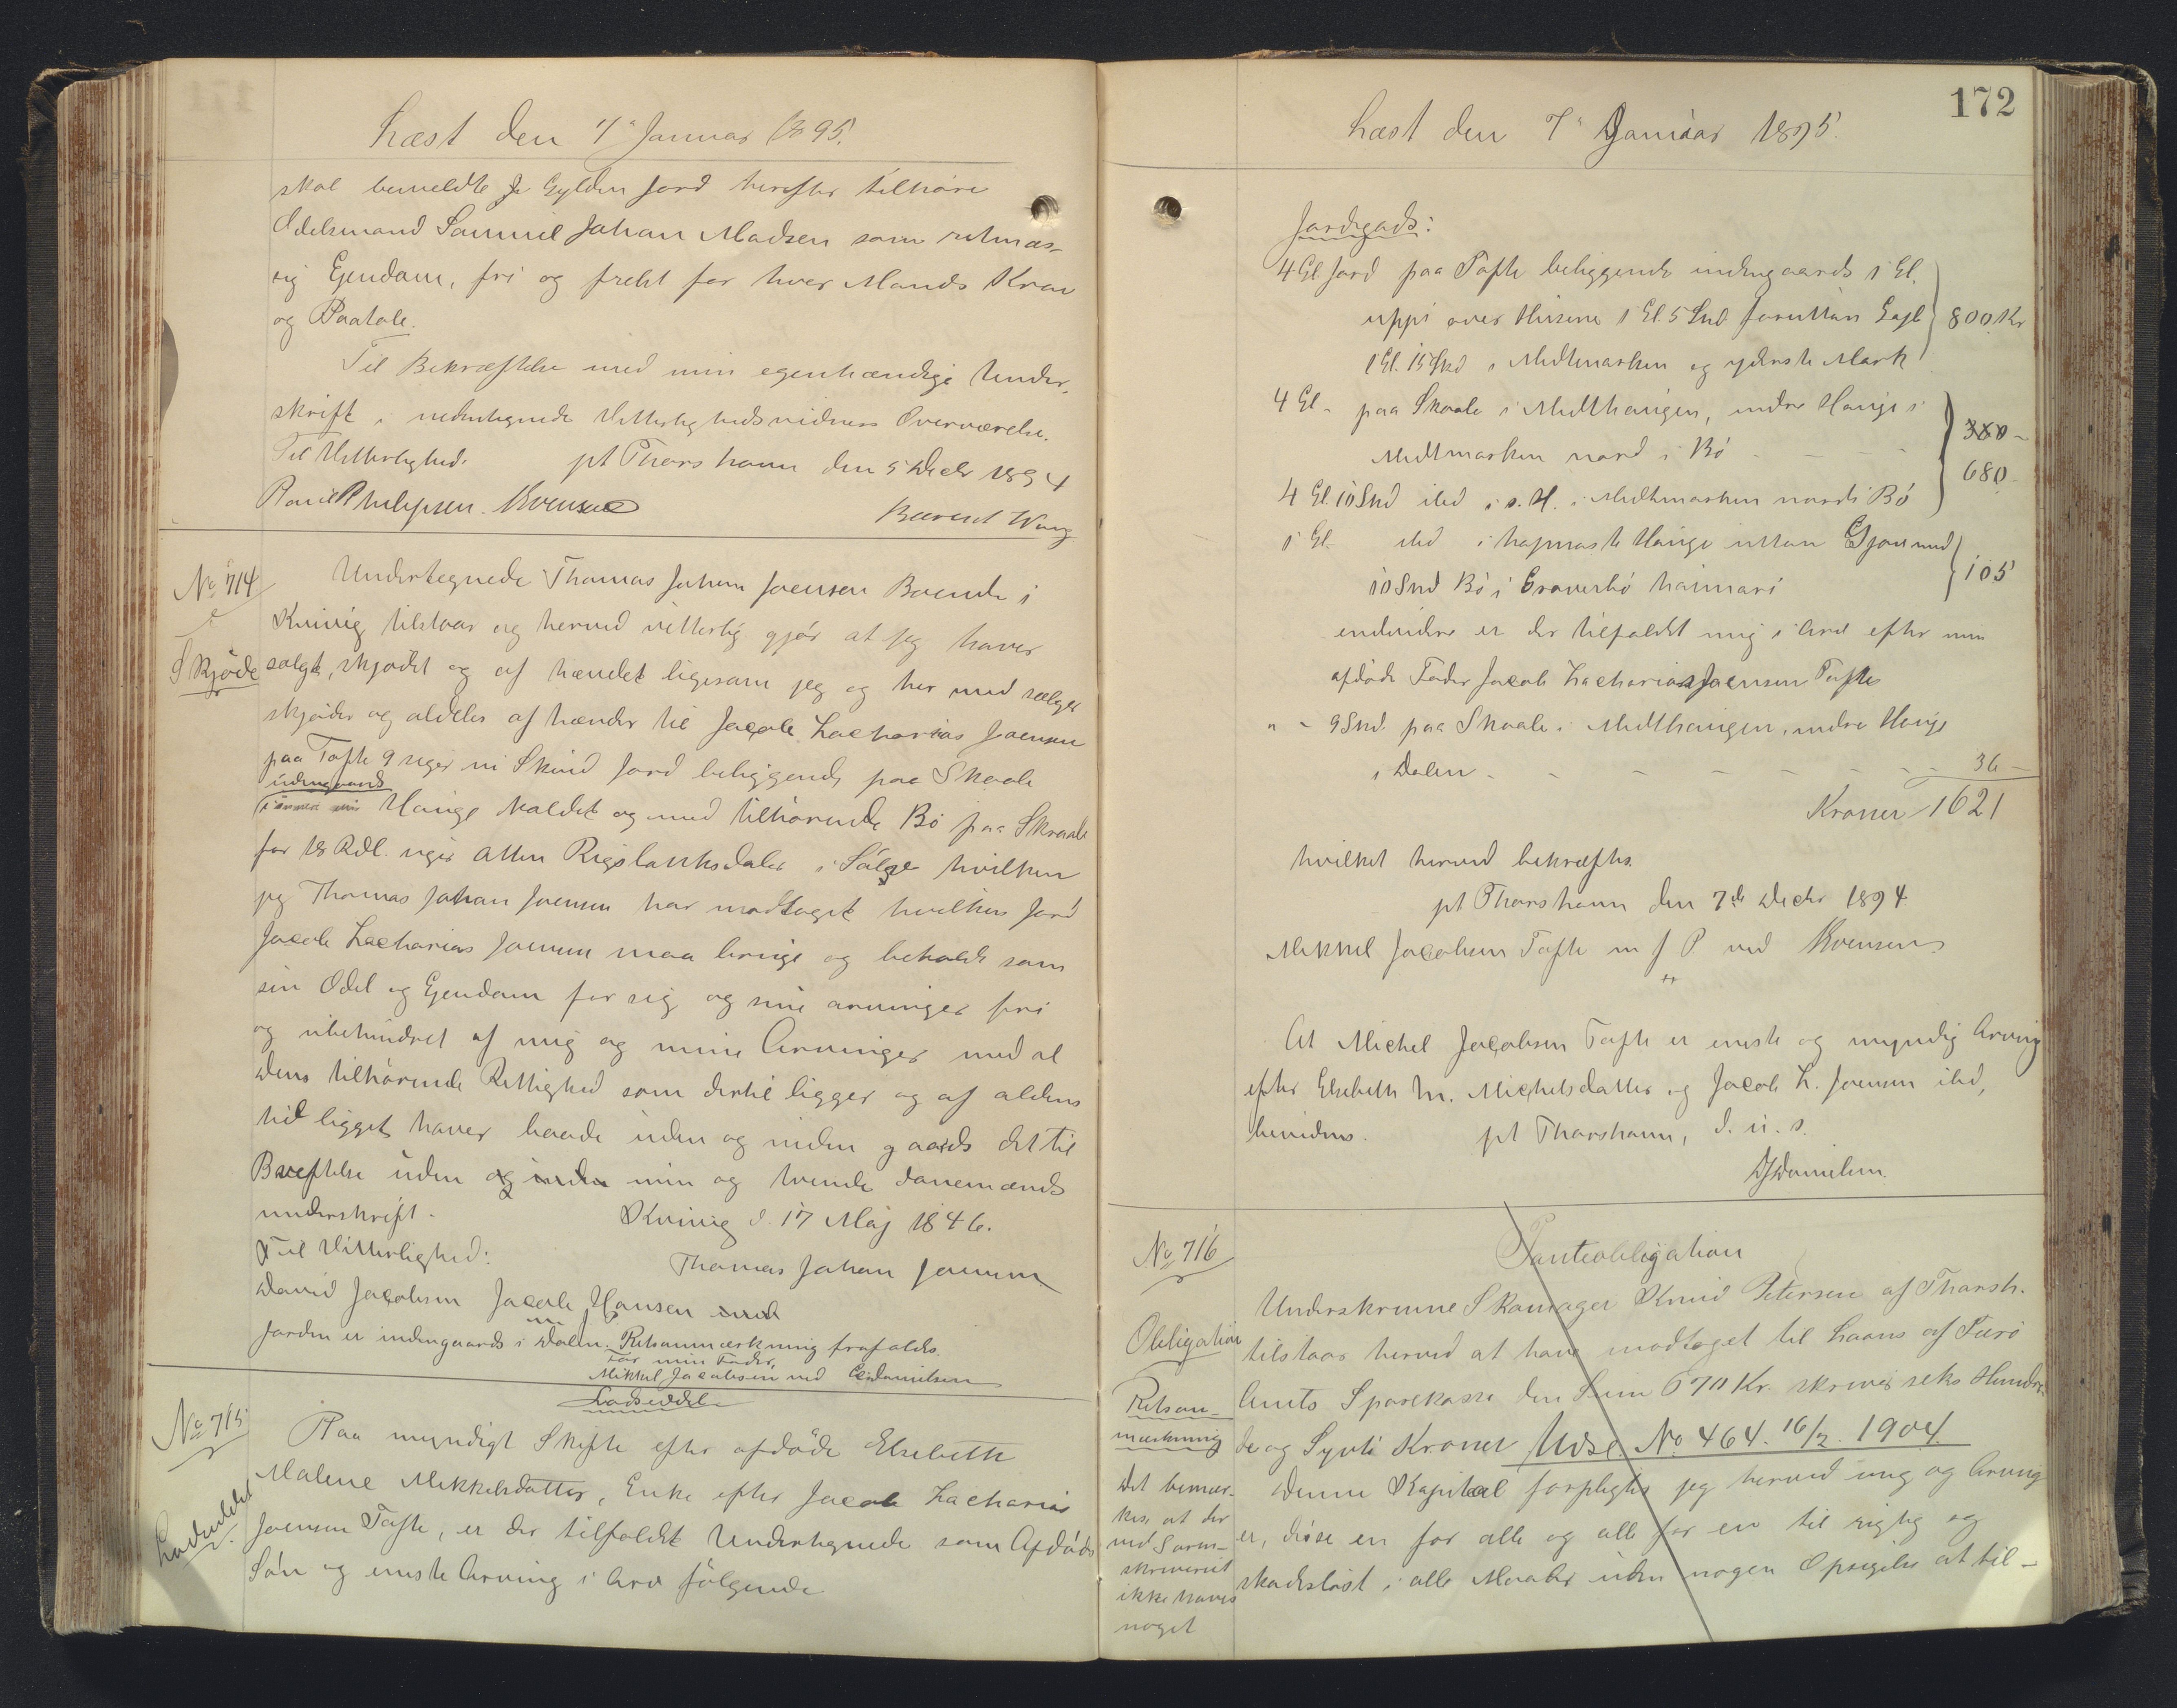 Læst den 7 Januar 1895.
skal bemeldte Gylden Jord herefter tilhøre
Odelsmand Samuel Johan Madsen som retmæs-
sig Ejendom, fri og frelst for hver Mands Krav
og Paatale.
Til Bekræftelse med min egenhændige Under-
skrift i nedentegnede Vitterlighedsvidners Overværelse.
Til Vitterlighed. pt Thorshavn den 5 Decbr 1894
Poul Philipsen. Svensen Berent Wang
No 714
Skjøde
Undertegnede Thomas Johan Joensen Boende i
Kvivig tilstaar og herved vitterlig gjør at jeg haver
solgt, skjødet og af hændet ligesom jeg og her med sælger
skjøder og aldeles af hænder til Jacob Zacharias Joensen
paa Tofte 9 siger ni Skind Jord beliggende paa Skaale
indengaards
Hauge kaldet og med tilhørende Bø paa Skaale
for 18 Rdl. siger Atten Rigsbanksdaler i Sølge hvilken
jeg Thomas Johan Joensen har modtaget hvilken Jord
Jacob Zacharias Joensen maa bruge og beholde som
sin Odel og Ejendom for sig og sine arvinger fri
og ubehindret af mig og mine Arvinger med al
dens tilhørende Rettighed som dertil ligger og af aldens
tid ligget haver baade uden og inden gaards det til
Bræftelse uden og inden min og tvende danemænds
underskrift. Kvivig d. 17 Maj 1846.
Til Vitterlighed: Thomas Johan Joensen
David Jacobsen Jacob Hansen
Jorden er indengaards i Dalen. Retsanmærkning frafaldes.
For min Fader,
Mikkel Jacobsen ved Danielsen
No 715
Lodseddel
Lodseddel
Paa myndigt Skifte efter afdøde Elsebeth
Malene Mikkelsdatter, Enke efter Jacob Zacharias
Joensen Tofte, er der tilfaldet Undertegnede som Afdødes
Søn og eneste Arving i Arv følgende
172
Læst den 7 Januar 1895.
Jordegods:
4 Gl. Jord paa Tofte beliggende indengaards 1 Gl.
uppi over Husene 1 Gl. 5 Snd foruttan Gajl 800 Kr
1 Gl. 15 Skd i Midtmarken og yderste Mark
4 Gl - paa Skaale i Midthaugen, indre Hauge i 360 -
Midtmarken nord i Bø 680 -
4 Gl. 10 Snd ibd i s. H. i Midtmarken nordi Bø
1 Gl - ibd i Hauge uttan Gjov med 105
10 Snd Bø i
endvidere er der tilfaldet mig i Arv efter min
afdøde Fader Jacob Zacharias Joensen Tofte
" - 9 Snd. paa Skaale i Midthaugen, indre Hauge
i Dalen - - - - - - 36 -
Kroner 1621
hvilket herved bekræftes.
pt Thorshavn den 7de Decbr 1894.
Mikkel Jacobsen Tofte m f P. ved Svensen
At Michel Jacobsen Tofte er eneste og myndig Arving
efter Elsebeth M. Michelsdatter og Jacob Z. Joensen ibd,
bevidnes. pt Thorshavn, d. u. s.
Danielsen.
No 716
Obligation
Retsan-
mærkning
Det bemær-
kes at der
ved Soren-
skriveriet
ikke haves
noget
Panteobligation
Underskrevne Skomager Knud Petersen af Thorsh.
tilstaar herved at have modtaget til Laans af Færø
Amts Sparekasse den Sum 670 Kr. skriver seks Hundre-
de og Syvti Kroner Udsl. No 464. 16/2. 1904.
Denne Kapital forpligter jeg herved mig og Arving
er, disse en for alle og alle for en til rigtig og
skadesløst i alle Maader uden nogen Opsigelse at til-